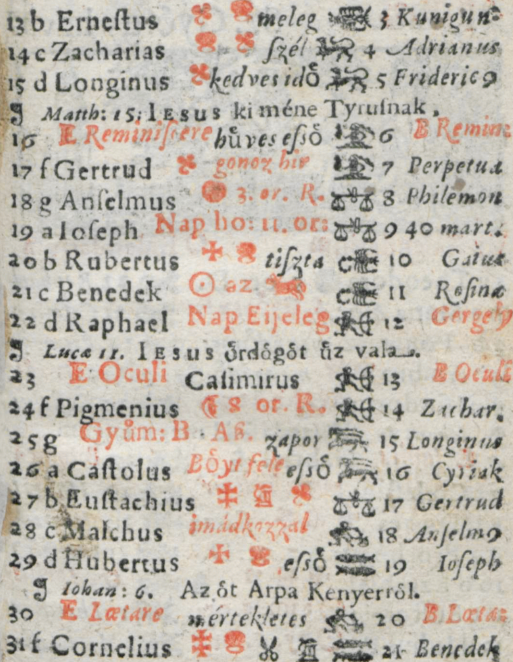 13 b Ernestus meleg 3 Kunigun=
14 c Zacharias szél 4 Adrianus
15 d Longinus kedves idő 5 Frideric9
J Matth: 15: IESUS ki méne Tyrusnak.
16 E Reminiscere hűves esső 6 E Remin:
17 f Gertrud gonoz hir 7 Perpetua
18 g Anselmus 3. or. R. 8 Philemon
19 a Ioseph Nap ho: 11. or: 9 40 mart.
20 b Rubertus tiszta 10 Gaius
21 c Benedek az 11 Rosina
22 d Raphael Nap Eijeleg 12 Gergely
J Lucæ 11. IESUS ördögöt űz vala.
23 E Oculi Casimirus 13 E Oculi
24 f Pigmenius 8 or. R. 14 Zachar.
25 g Gyům: B. As. zapor 15 Longinus
26 a Castolus Bőyt fele esső 16 Cyriak
27 b Eustachius 17 Gertrud
28 c Malchus imadkozzal 18 Anselm9
29 d Hubertus esső 19 Ioseph
J Iohan: 6. Az öt Arpa Kenyerről.
30 E Lætare mértekletes 20 E Læta:
31 f Cornelius 21 Benedek